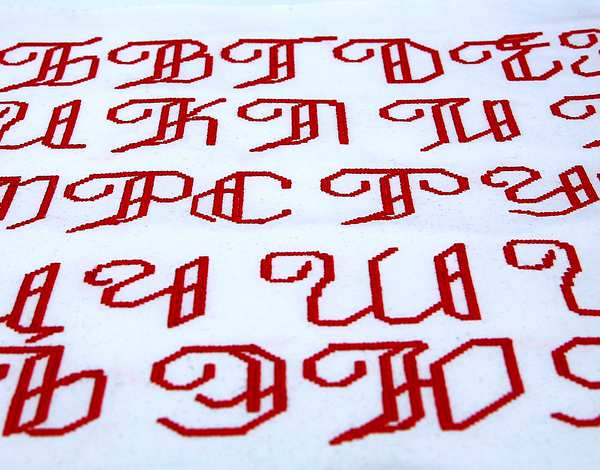 Б В Г Д Е
И К Л М
П Р С Т У
Ц Ч Ш
Ь Э Ю